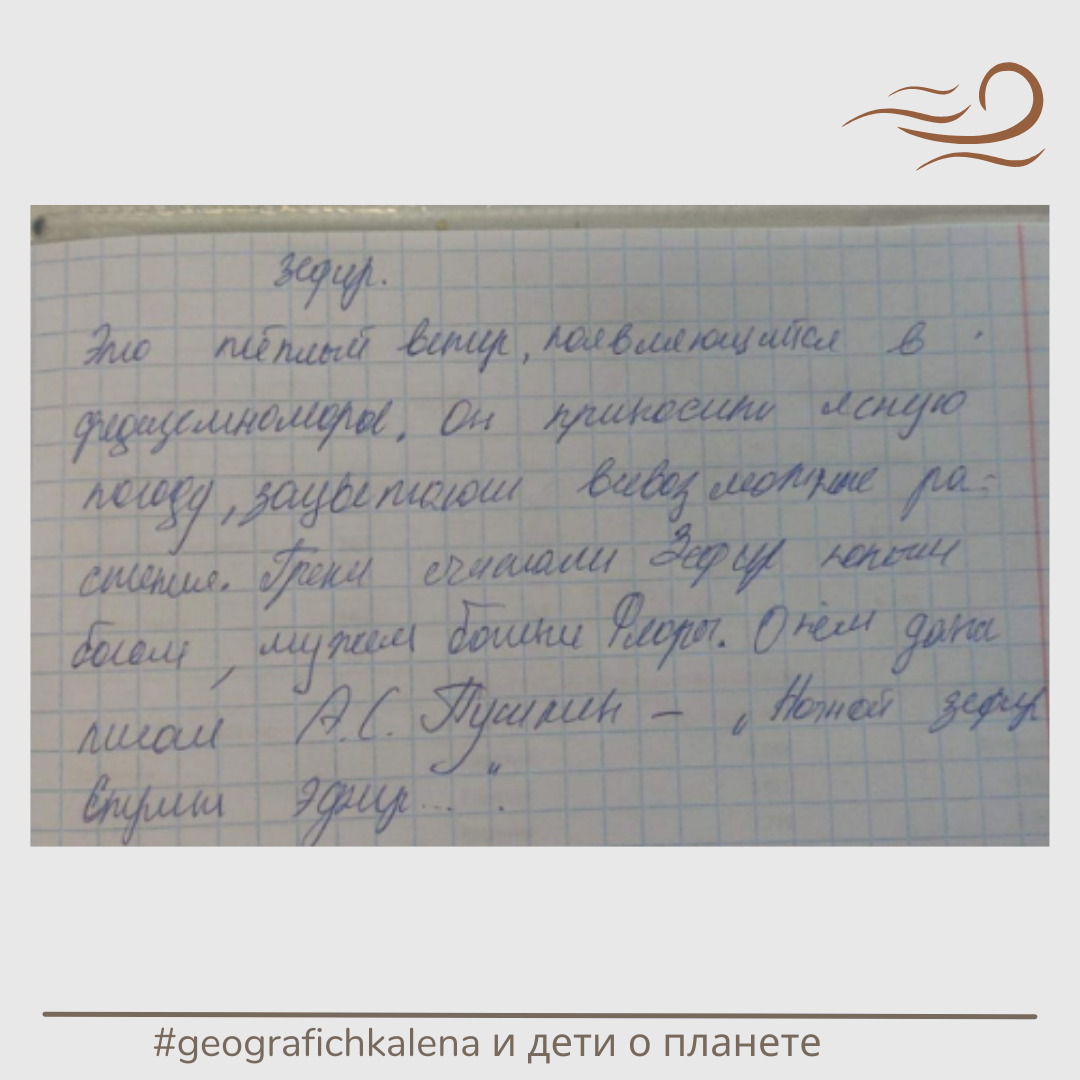 Зефир.
Это тёплый ветер, появляющийся в
средиземноморье. Он приносит ясную
погоду, зацветают всевозможные ра-
стения. Греки считали Зефир юным
богом, мужем богини Флоры. О нём даже
писал А.С. Пушкин – „Ночной зефир
Струит эфир...".
#geografichkalena и дети о планете